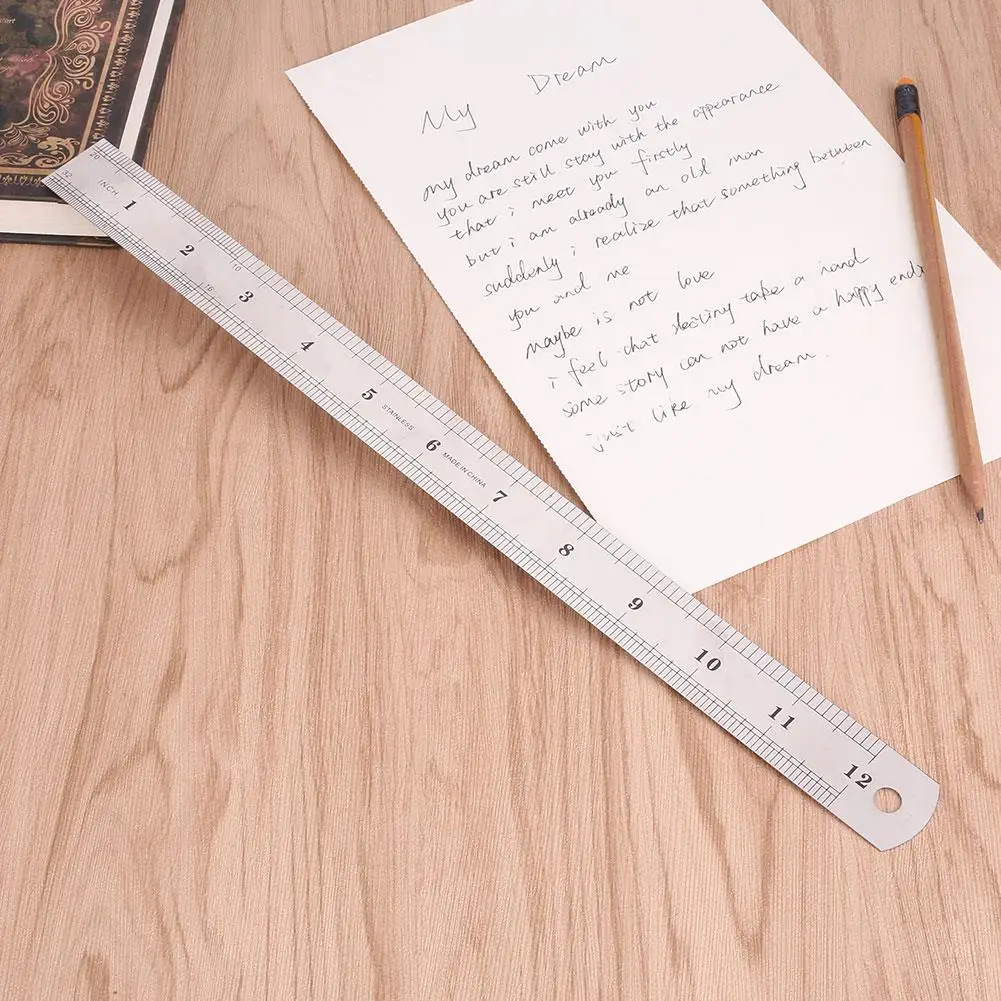 My Dream
my dream come with you
you are still stay with the appearance
that i meet you firstly
but i am already an old man
suddenly i realize that something between
you and me
maybe is not love
i feel chat destiny take a hand
some story can not have a happy end
just like my dream.
20
32
INCH
1
2
10
16
3
4
5
STAINLESS
6
MADE IN CHINA
7
8
9
10
11
12